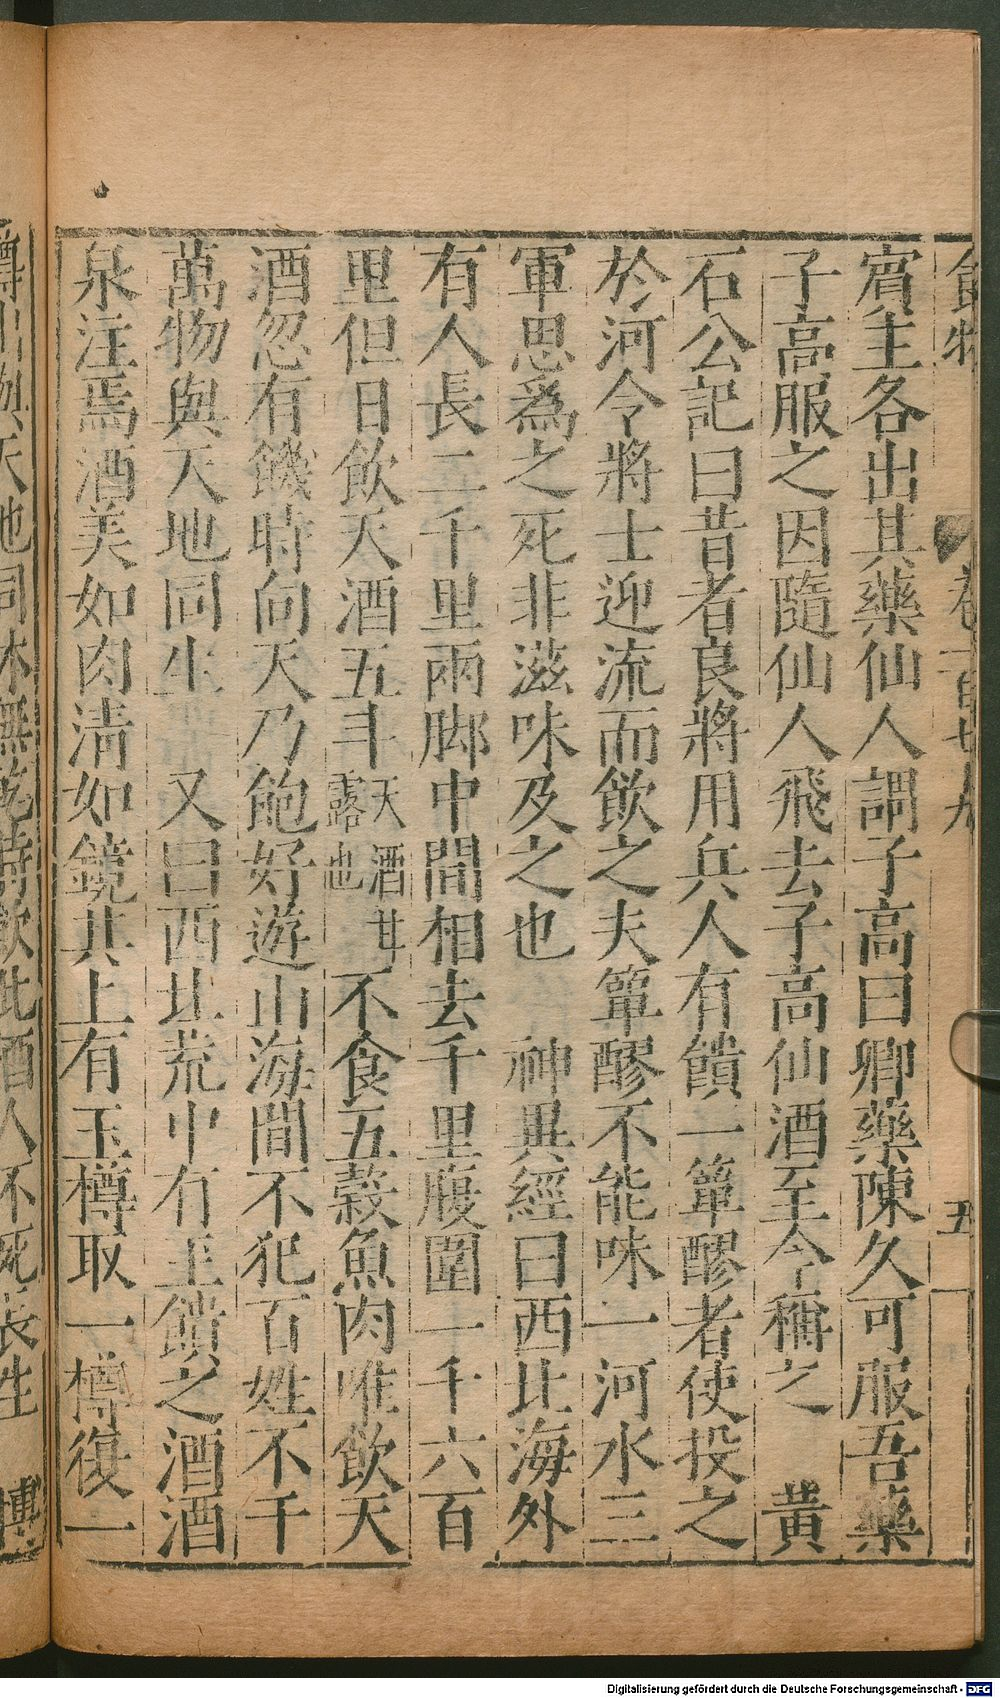 食物
卷一百七九
五
賔主各出其藥仙人謂子高曰卿藥陳久可服吾藥
子高服之因隨仙人飛去子高仙酒至今稱之　黃
石公記曰昔者良將用兵人有饋一簞醪者使投之
於河令將士迎流而飲之夫簞醪不能味一河水三
軍思爲之死非滋味及之也　神異經曰西北海外
有人長二千里兩脚中間相去千里腹圍一千六百
里但日飲天酒五斗天酒甘露也不食五穀魚肉唯飲天
酒忽有饑時向天乃飽好遊山海間不犯百姓不干
萬物與天地同生　又曰西北荒中有玉饋之酒酒
泉注焉酒美如肉清如鏡其上有玉樽取一樽復一
樽出與天地同休無乾時飲此酒人不死長生　博
Digitalisierung gefördert durch die Deutsche Forschungsgemeinschaft - DFG